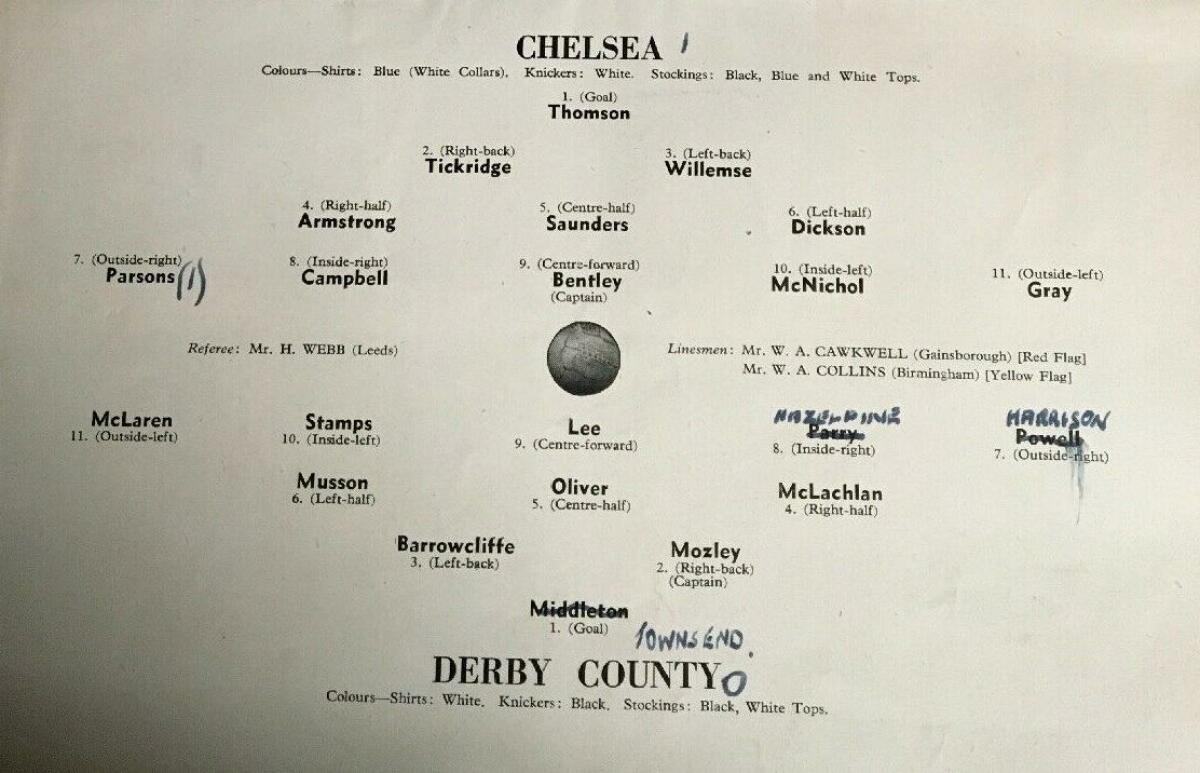 CHELSEA 1
Colours—Shirts: Blue (White Collars). Knickers: White. Stockings: Black, Blue and White Tops.
1. (Goal)
Thomson
2. (Right-back) 3. (Left-back)
Tickridge Willemse
4. (Right-half) 5. (Centre-half) 6. (Left-half)
Armstrong Saunders Dickson
7. (Outside-right) 8. (Inside-right) 9. (Centre-forward) 10. (Inside-left) 11. (Outside-left)
Parsons (1) Campbell Bentley McNichol Gray
(Captain)
Referee: Mr. H. WEBB (Leeds) Linesmen: Mr. W. A. CAWKWELL (Gainsborough) [Red Flag]
Mr. W. A. COLLINS (Birmingham) [Yellow Flag]
HAZELDINE HARRISON
McLaren Stamps Lee Parry Powell
11. (Outside-left) 10. (Inside-left) 9. (Centre-forward) 8. (Inside-right) 7. (Outside-right)
Musson Oliver McLachlan
6. (Left-half) 5. (Centre-half) 4. (Right-half)
Barrowcliffe Mozley
3. (Left-back) 2. (Right-back)
(Captain)
Middleton
1. (Goal) TOWNSEND.
DERBY COUNTY 0
Colours—Shirts: White. Knickers: Black. Stockings: Black, White Tops.